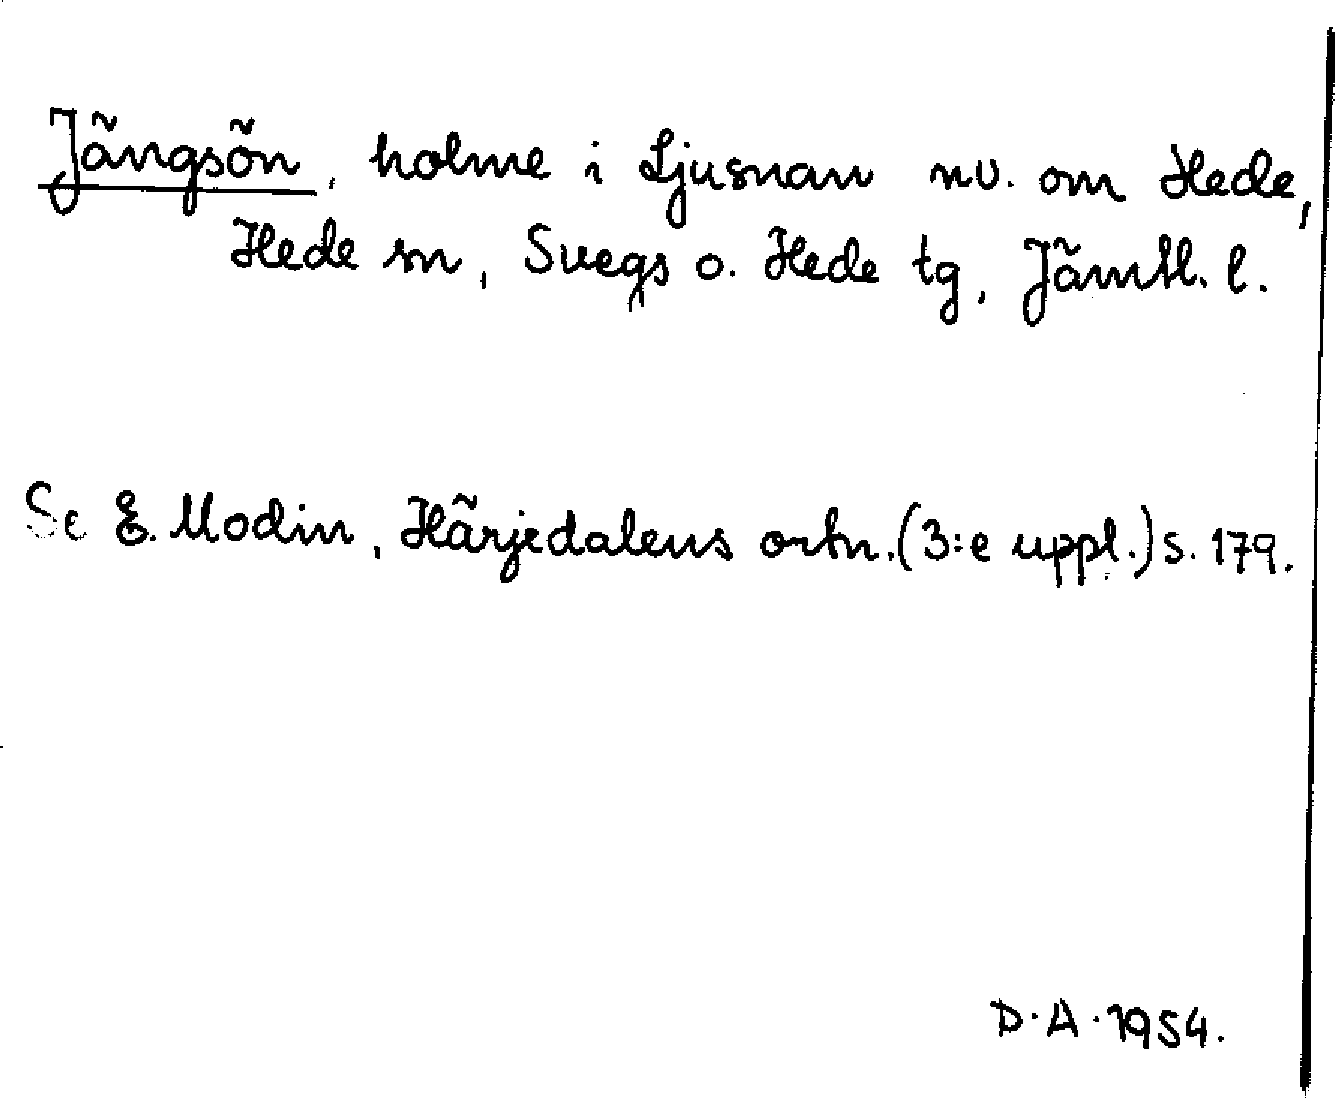 Jängsön, holme i Ljusnan nv. om Hede,
Hede sn, Svegs o. Hede tg, Jämtl. l.
Se E. Modin, Härjedalens ortn. (3:e uppl.) s. 179.
D. A. 1954.